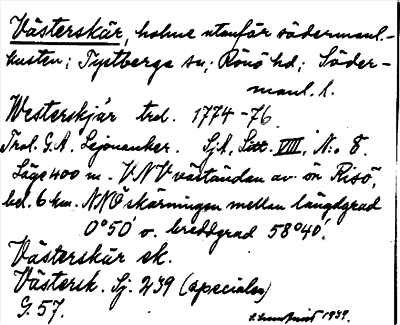 Västerskär, holme utanför södermanl.-
kusten; Tystberga sn; Rönö hd; Söder-
manl. l.
Westerskjär trol. 1774-76
Trol. G.A. Lejonanker. Sjk. Litt. VIII, N:o 8.
Läge 400 m. VNV väständan av ön Risö,
bel. 6 km. NNÖ skärningen mellan längdgrad
0°50' o. breddgrad 58°40'.
Västerskär ek.
Västersk. Sj. 239 (specialen)
G. 57.
1939.